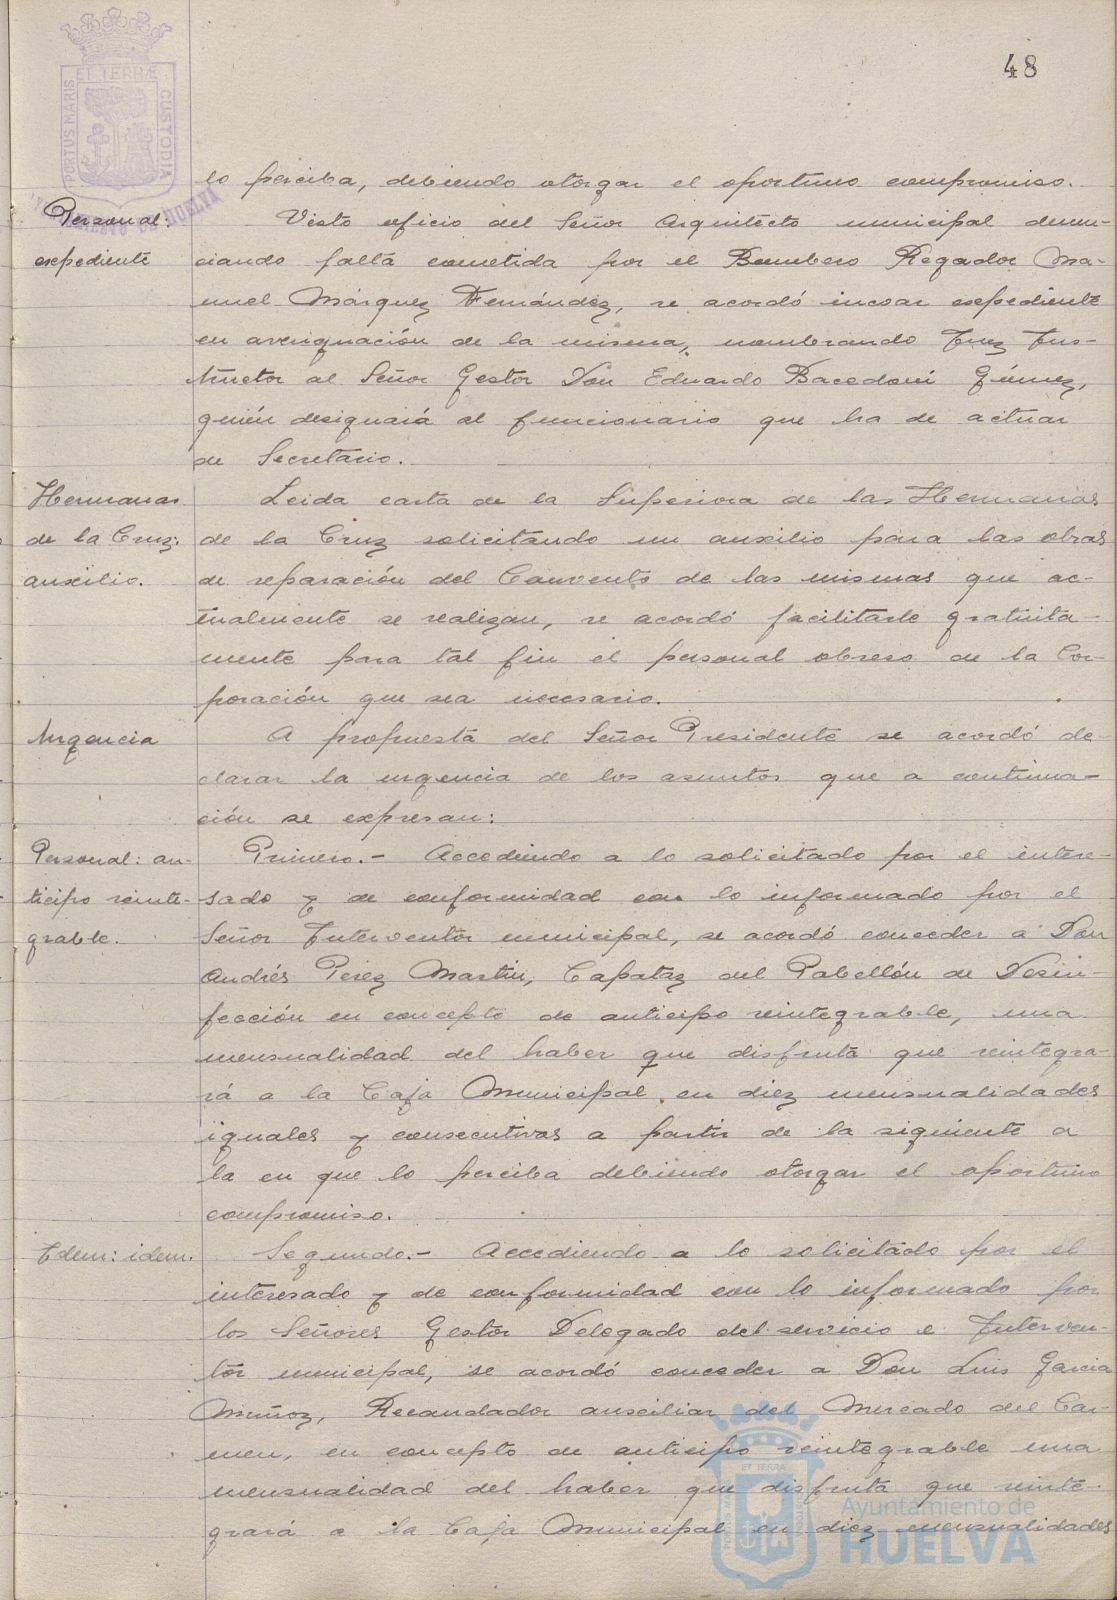 48
PORTUS MARIS
ET TERRÆ
CUSTODIA
HUELVA
lo perciba, debiendo otorgar el oportuno compromiso.
Personal:
expediente
Visto oficio del Señor Arquitecto municipal denun-
ciando falta cometida por el Bombero Regador Ma-
nuel Márquez Fernández, se acordó incoar expediente
en averiguación de la misma, nombrando Juez Ins-
tructor al Señor Gestor Don Eduardo
quién designará al funcionario que ha de actuar
de Secretario.
Hermanas
de la Cruz:
auxilio.
Leida carta de la Superiora de las Hermanas
de la Cruz solicitando un auxilio para las obras
de reparación del Convento de las mismas que ac-
tualmente se realizan, se acordó facilitarle gratuita-
mente para tal fin el personal obrero de la Cor-
poración que sea necesario.
Urgencia
A propuesta del Señor Presidente se acordó de-
clarar la urgencia de los asuntos que a continua-
ción se expresan:
Personal: an-
ticipo reinte-
grable.
Primero.- Accediendo a lo solicitado por el intere-
sado y de conformidad con lo informado por el
Señor Interventor municipal, se acordó conceder a Don
Andrés Pérez Martin, Capataz del Pabellón de Desin-
fección en concepto de anticipo reintegrable, una
mensualidad del haber que disfruta que reintegra-
rá a la Caja Municipal en diez mensualidades
iguales y consecutivas a partir de la siguiente a
la en que lo perciba debiendo otorgar el oportuno
compromiso.
Idem: idem.
Segundo.- Accediendo a lo solicitado por el
interesado y de conformidad con lo informado por
los Señores Gestor Delegado del servicio e Interven-
tor municipal, se acordó conceder a Don Luis Garcia
Muñoz, Recaudador auxiliar del Mercado del Car-
men, en concepto de anticipo reintegrable una
mensualidad del haber que disfruta que reinte-
grará a la Caja Municipal en diez mensualidades
Ayuntamiento de
HUELVA